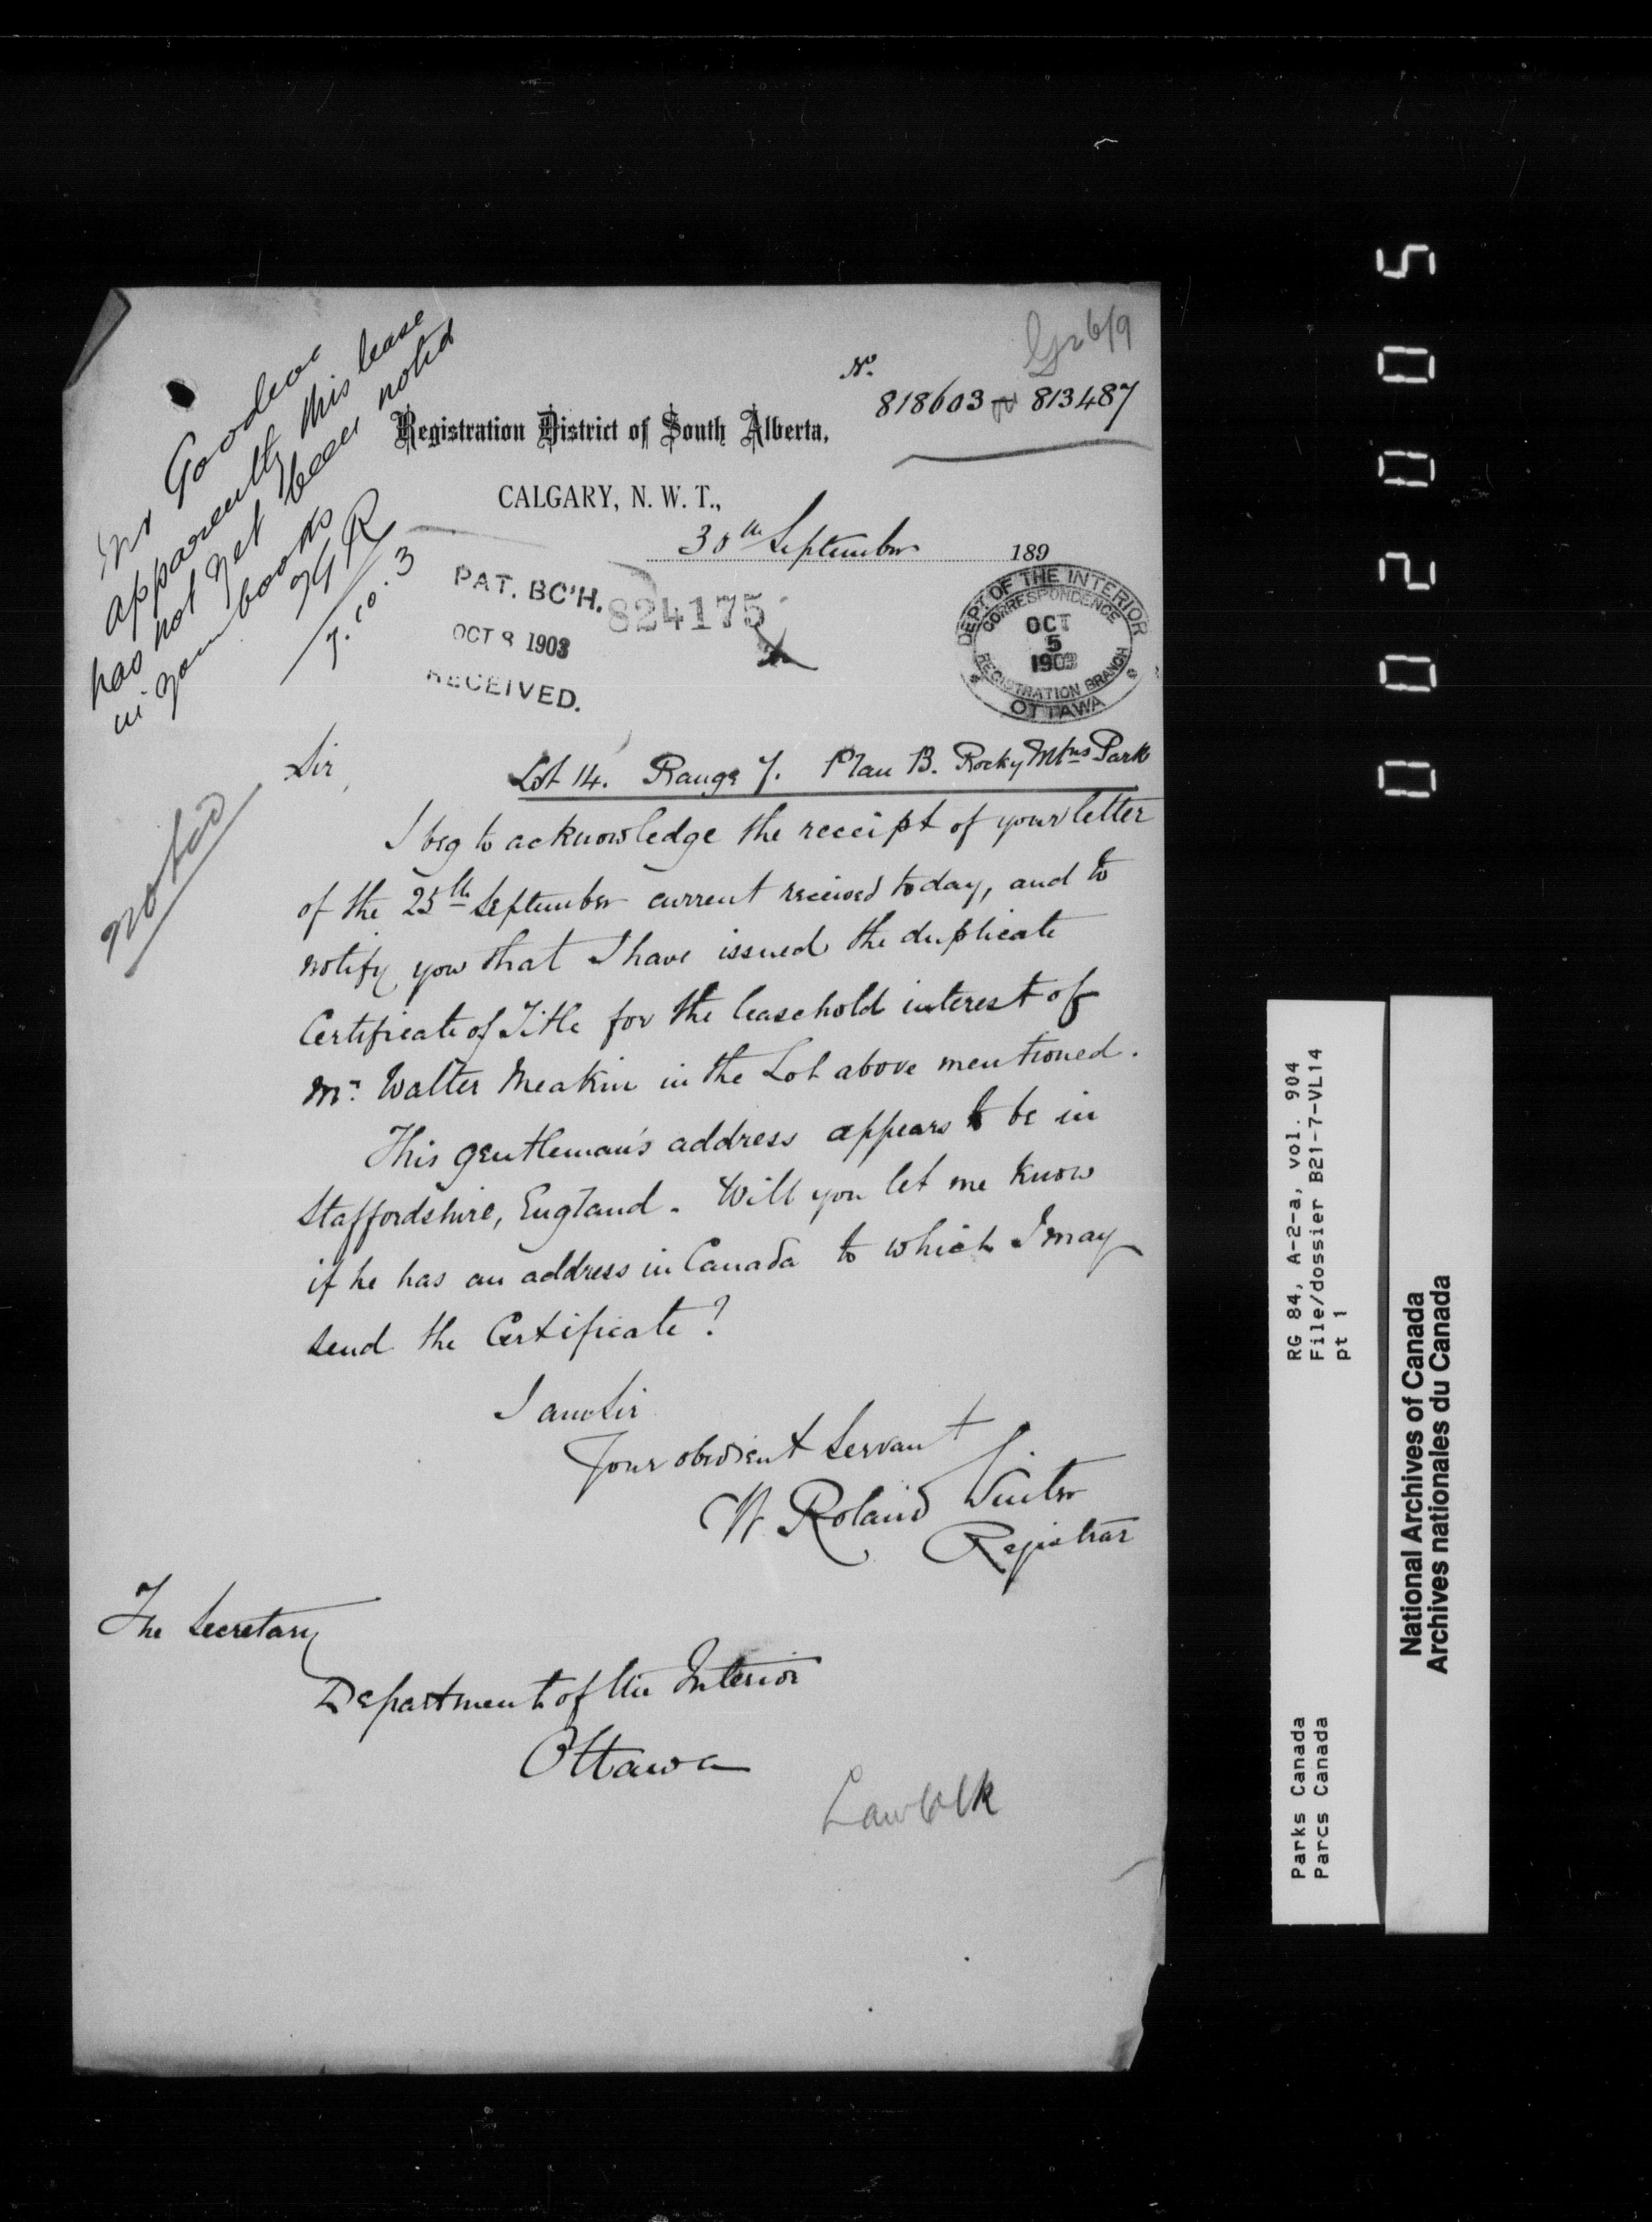 No.
818603 813487
Registration District of South Alberta,
CALGARY, N. W. T.,
30th September 189
Mr Goodeve
apparently this lease
has not yet been noted
in your books
7.10.3
PAT. BC'H.
OCT 8 1903
RECEIVED.
824175
DEPT OF THE INTERIOR
CORRESPONDENCE
OCT
5
1903
REGISTRATION BRANCH
OTTAWA
noted
Sir,
Lot 14. Range 7. Plan B. Rocky Mtns Park
I beg to acknowledge the receipt of your letter
of the 25th September current received today, and to
notify you that I have issued the duplicate
Certificate of Title for the leasehold interest of
Mr. Walter Meakin in the Lot above mentioned.
This gentleman's address appears to be in
Staffordshire, England. Will you let me know
if he has an address in Canada to which I may
send the Certificate?
I am Sir
Your obedient Servant
W. Roland Winter
Registrar
The Secretary
Department of the Interior
Ottawa
Law Clk
002005
RG 84, A-2-a, vol. 904
File/dossier B21-7-VL14
pt 1
Parks Canada
Parcs Canada
National Archives of Canada
Archives nationales du Canada